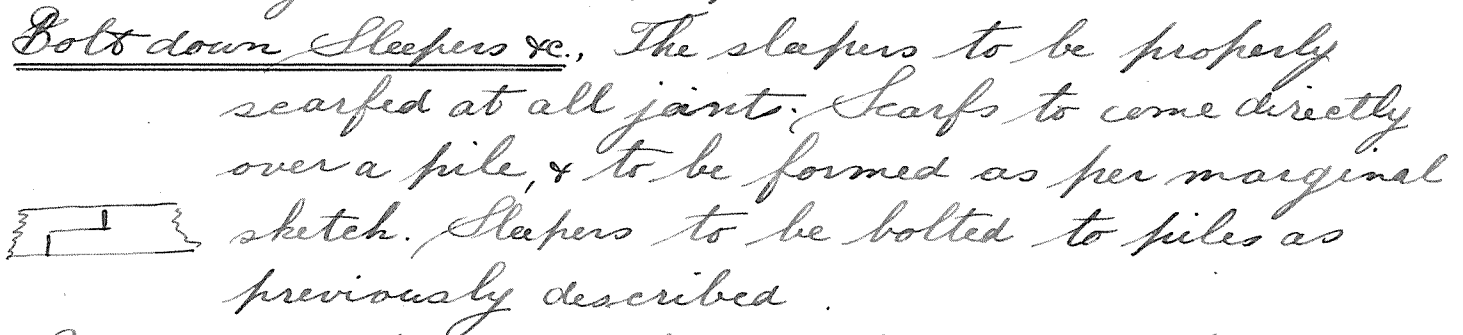 Bolt down Sleepers &c., The sleepers to be properly
scarfed at all joints. Scarfs to come directly
over a pile, & to be formed as per marginal
sketch. Sleepers to be bolted to piles as
previously described.